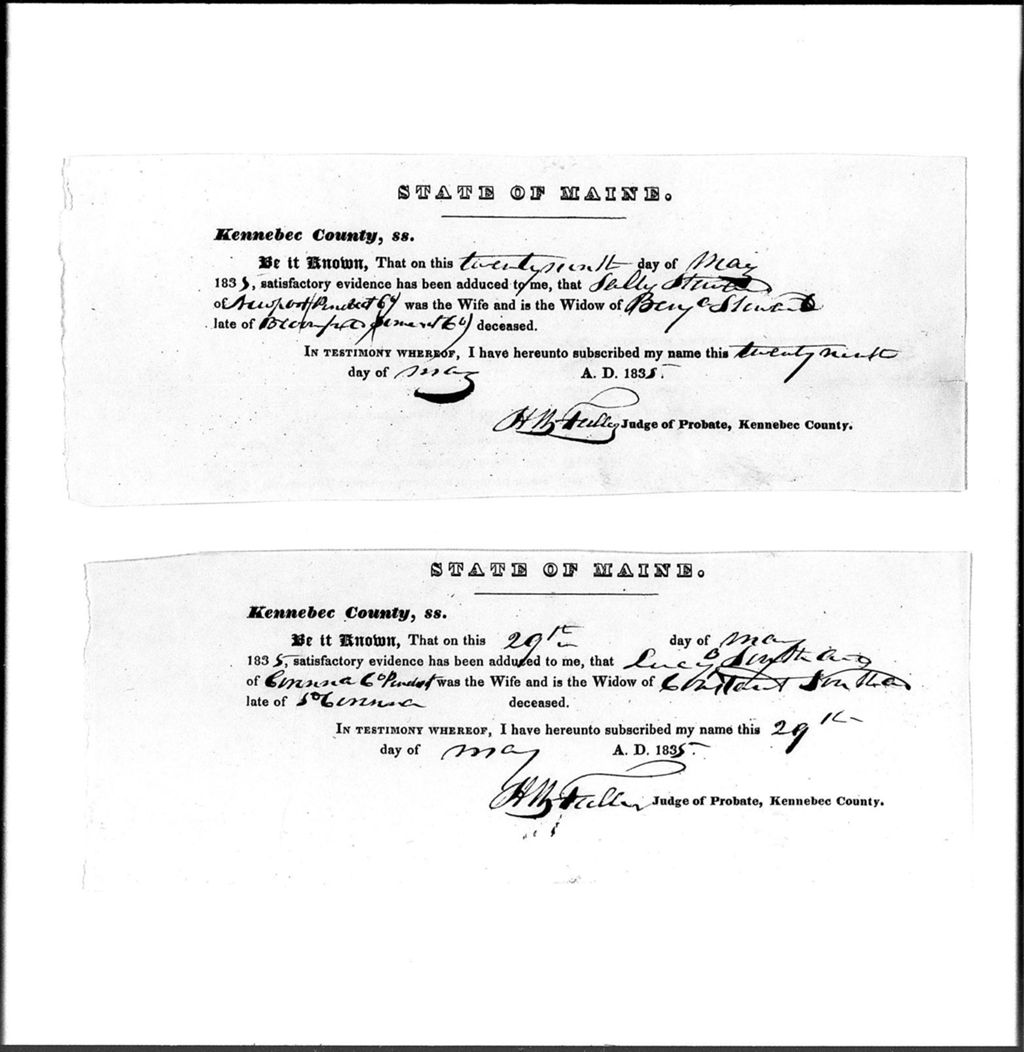 STATE OF MAINE.
Kennebec County, ss.
Be it Known, That on this twenty ninth day of May
1835, satisfactory evidence has been adduced to me, that Sally Steward
of Newport Penobst Co) was the Wife and is the Widow of Benj a Steward
late of (Somerset Co) deceased.
IN TESTIMONY WHEREOF, I have hereunto subscribed my name this twenty ninth
day of may A. D. 1835.
H W Fuller Judge of Probate, Kennebec County.
STATE OF MAINE.
Kennebec County, ss.
Be it Known, That on this 29th day of may
1835, satisfactory evidence has been adduced to me, that Lucy
of Corinna Co Penobst was the Wife and is the Widow of Constant
late of Sd Corinna deceased.
IN TESTIMONY WHEREOF, I have hereunto subscribed my name this 29th
day of may A. D. 1835.
H W Fuller Judge of Probate, Kennebec County.